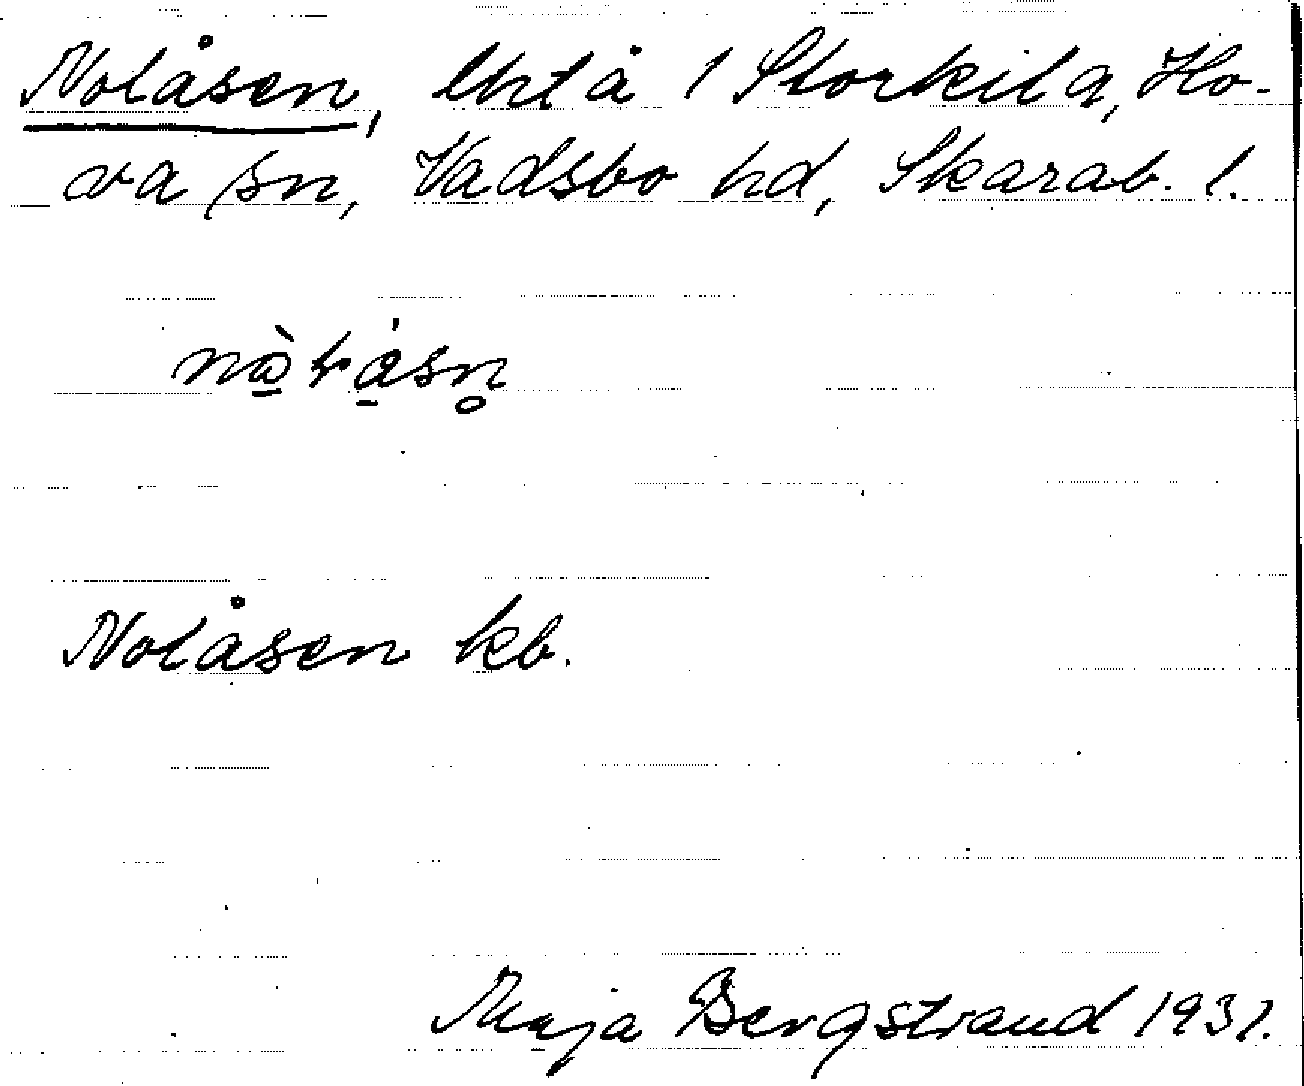 Nolåsen, lht å 1 Storkila, Ho-
va sn, Vadsbo hd, Skarab. l.
Nolåsen kb.
Maja Bergstrand 1931.